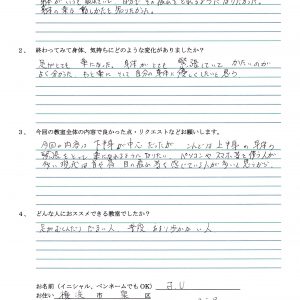 身体の乗り動しかたを知りたかった。
2、 終わってみて身体、気持ちにどのような変化がありましたか？
足がとても 楽になった。身体がとても 緊張していて かたいのが
よく分かった もっと楽にして自分の身体に優しくしたいと思う
3、 今回の教室全体の内容で良かった点・リクエストなどお願いします。
今回の内容は 下半身が中心だったが こんどは上半身の身体の
緊張をとって楽になれるようになりたい パソコンやスマホ等を使う人が
多い現代は首や肩 目の疲れ等で感じている人が多いと思うから
4、 どんな人におススメできる教室でしたか？
足がむくんだり だるい人 普段 あまり歩かない人
お名前（イニシャル、ペンネームでもOK） J.U
お住い 横浜 市 栄 区